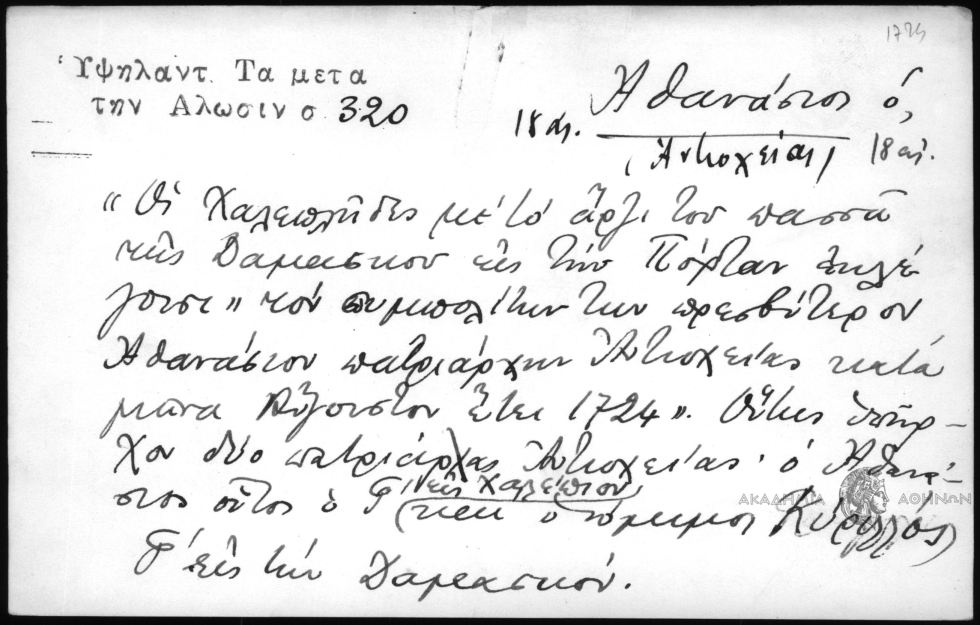 1724
Ὑψηλαντ. Τα μετα
την Αλωσιν σ. 320
18 αἰ. Ἀθανάσιος ὁ,
(Ἀντιοχείας) 18 αἰ.
"Οἱ Χαλεπλῆδες μὲ τὸ ἄρζι τοῦ πασσᾶ
τῆς Δαμασκοῦ εἰς τὴν Πόρταν ἐκλέ
γουσι" τὸν συμπολίτην των πρεσβύτερον
Ἀθανάσιον πατριάρχην Ἀντιοχείας κατὰ
μῆνα Αὔγουστον ἔτει 1724". Οὕτως ὑπῆρ-
χον δύο πατριάρχας Ἀντιοχείας· ὁ Ἀθανά-
εἰς Χαλέπιον
σιος οὗτος ὁ Γ΄ καὶ ὁ Κύριλλος
Γ΄ εἰς τὴν Δαμασκόν.
ΑΚΑΔΗΜΙΑ ΑΘΗΝΩΝ